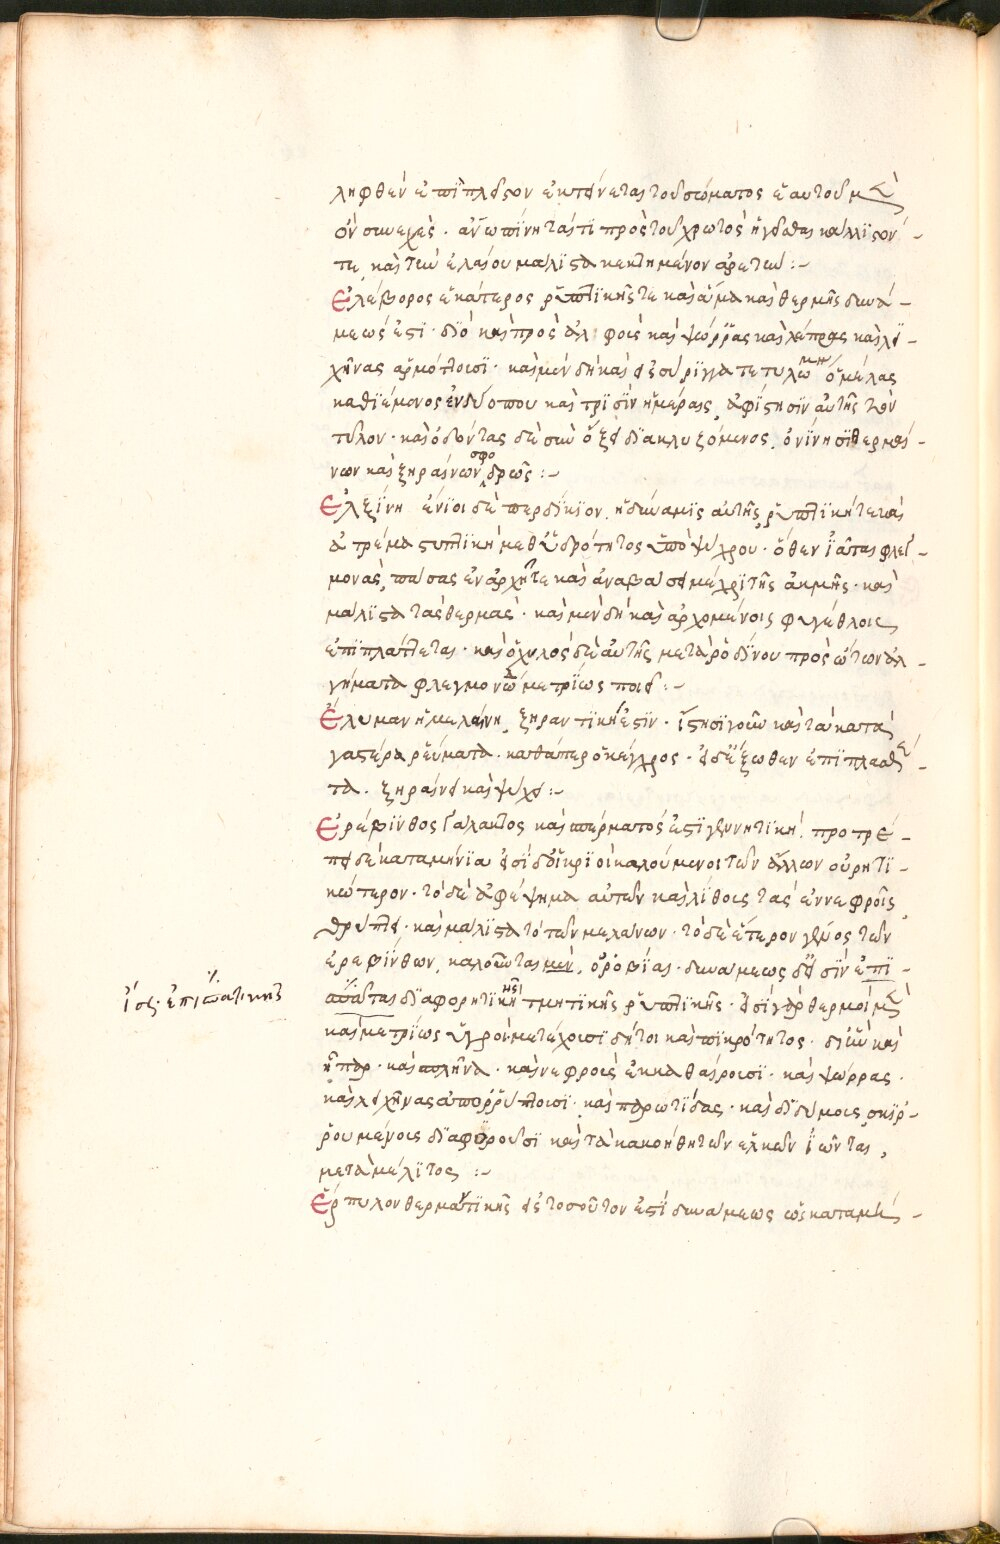 ληφθὲν ἐπιπλεῖον ἐκτείνεται τοῦ σώματος ἑαυτοῦ μὲν
ὂν συνεχὲς · ἂν ὠπίνηταί τι πρὸς τοῦ χρωτὸς ἡγεῖσθαι κάλλιϊστον
τε καὶ τῶν ἐλαίου μάλιϊστα κεκτημένον ἀρετῶν :-
Ἐλέβορος ἑκάτερος ῥυπτϊκῆς τε καὶ ἅμα καὶ θερμῆς δυνά-
μεώς ἐστι · δϊὸ καὶ πρὸς ἀλφοὺς καὶ ψώρρας καὶ λέπρας καὶ λει-
χῆνας ἁρμόττουσϊ · καὶ μὲν δὴ καὶ εἰ σύρϊγγα τετυλωμένη ὁ μέλας
καθϊέμενος ἔνδυο που καὶ τρϊσϊν ἡμέραις, ἀφίστησϊν αὐτῆς τὸν
τύλον · καὶ ὀδόντας δὲ σὺν ὄξει δϊακλυζόμενος, ὀνίνησϊ θερμαί-
νων καὶ ξηραίνων σφοδρῶς :-
Ἐλξίνη ἔνϊοι δὲ περδίκϊον, ἡ δύναμϊς αὐτῆς ῥυπτϊκή τε καὶ
ἀτρέμα στυπτϊκὴ μεθ ὑδρότητος ὑπὸ ψύχρου · ὅθεν ϊᾶται φλεγ-
μονὰς πάσας ἐν ἀρχῆ τε καὶ ἀναβάσει μέχρϊ τῆς ἀκμῆς · καὶ
μάλιστα τὰς θερμὰς · καὶ μὲν δὴ καὶ ἀρχομένοις φυγέθλοις
ἐπϊπλάττεται · καὶ ὁ χυλὸς δὲ αὐτῆς μετὰ ῥοδίνου πρὸς ὤτων ἀλ-
γήματα φλεγμονῶν μετρίως ποιεῖ :-
Ἔλυμαν ἡ μελάνη, ξηραντϊκὴ ἐστϊν · ἵστησϊ γοῦν καὶ τὰ κατὰ
γαστέρα ῥεύματα · καθάπερ ὁ κέγχρος · εἰ δὲ ἔξωθεν ἐπϊπλασθεί-
τα · ξηραίνει καὶ ψύχει :-
Ἐρέβϊνθος Γάλακτος καὶ σπέρματός ἐστϊ γεννητϊκή · προτρέ-
πει δὲ καταμήνϊα εἰσὶ δ οἱ κρϊοὶ καλούμενοι τῶν ἄλλων οὐρητϊ-
κώτερον · τὸ δὲ ἀφέψημα αὐτῶν καὶ λίθους τὰς ἐν νεφροῖς
θρύπτει · καὶ μάλϊστα τὸ τῶν μελάνων · τὸ δὲ ἕτερον γένος τῶν
ἐρεβίνθων, καλοῦνται μὲν, ὀροβίας · δυνάμεως δέ εἰσϊν ἐπϊ-
σπᾶται δϊαφορητϊκὴ κῆς τμητϊκῆς ῥυπτϊκῆς · εἰσϊ γὰρ θερμοὶ μὲν
καὶ μετρίως ὑγροὶ μετέχουσϊ δήτοι καὶ πϊκρότητος · δι ἣν καὶ
ἧπαρ · καὶ σπλῆνα · καὶ νεφροὺς ἐκκαθαίρουσϊ · καὶ ψώρρας ·
καὶ λειχῆνας ἀπορρύπτουσϊ · καὶ παρωτίδας · καὶ δϊδύμους σκϊρ-
ρουμένους δϊαφοροῦσϊ καὶ τὰ κακοήθη τῶν ἑλκῶν ϊῶνται,
μετὰ μέλϊτος :-
Ἕρπυλον θερμαντϊκῆς εἰς τοσοῦτον ἐστϊ δυνάμεως ὡς καταμή-
ἴσς · ἐπισπατικῆς